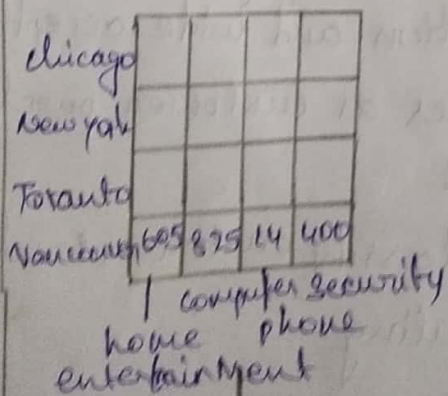 chicago
New yak
Toranto
Vancouver 605 825 14 400
computer security
home phone
entertainment